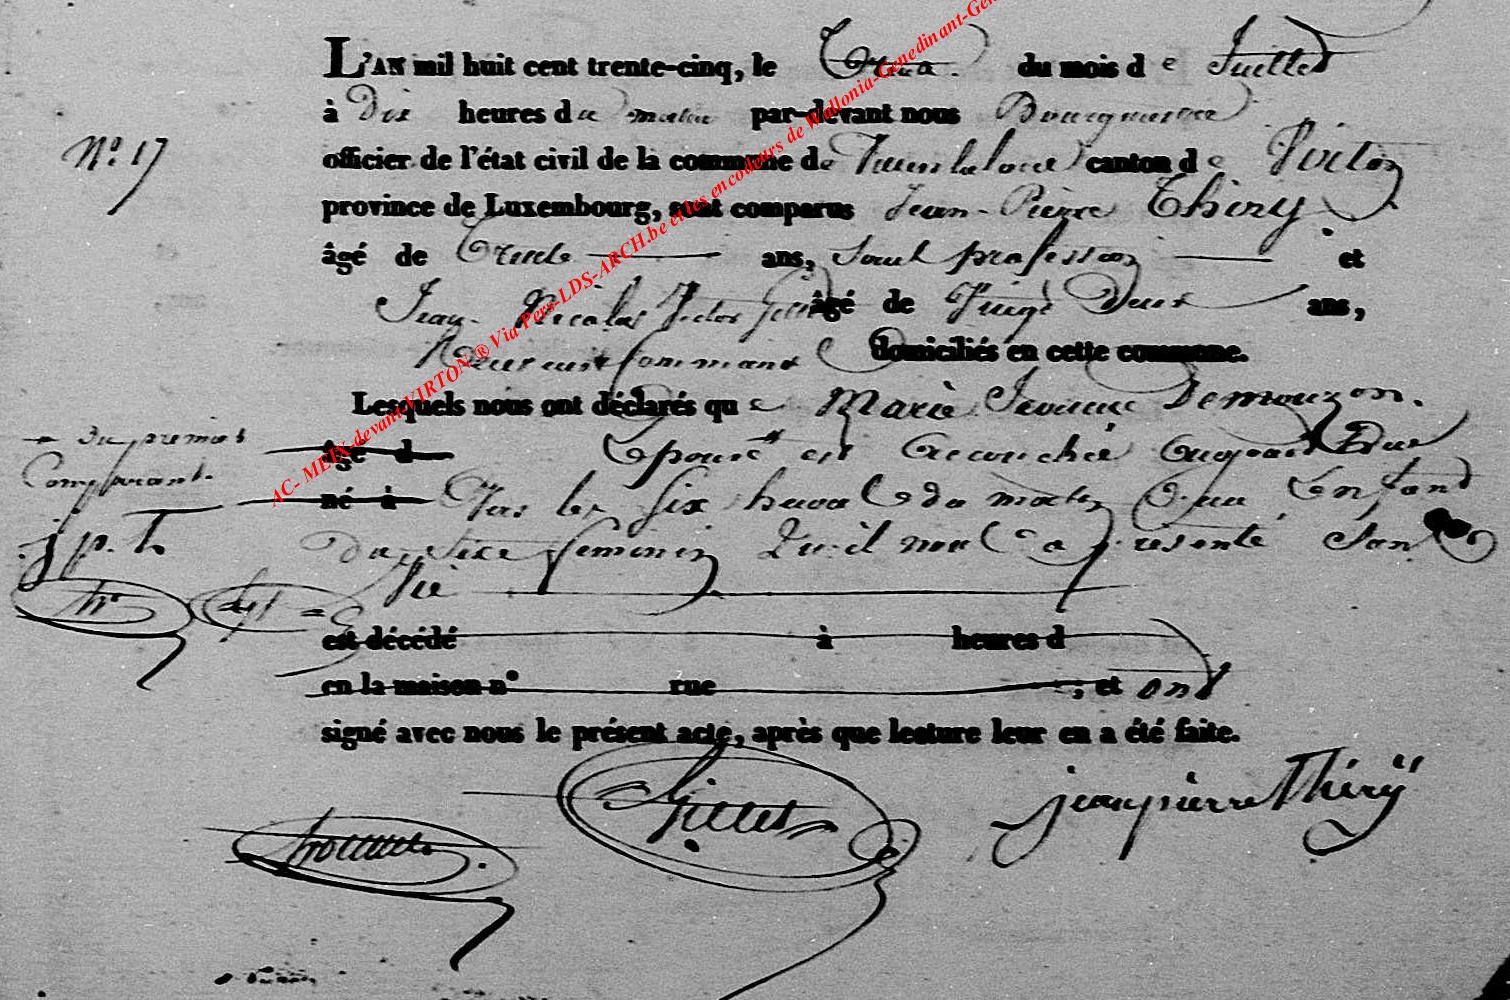 L'AN mil huit cent trente-cinq, le Trois du mois de Juillet
à Dix heures du matin par-devant nous Bourguemestre
Nº 17
officier de l'état civil de la commune de canton de Virton
province de Luxembourg, sont comparus Jean-Pierre Thiry
âgé de Trente ans, Sans profession et
Jean Nicolas Victor âgé de Vingt Deux ans,
domiciliés en cette commune.
Lesquels nous ont déclarés que Marie Jeanne Demouzon.
du premier
âgé d Epouse est accouchée aujourd'hui
Comparant.
né à Vers les Six heures du matin d'un Enfant
j p. th
Du Sexe feminin Qu'il nous a présenté Sans
Vie
est décédé à heures d
en la maison nº rue ; et ont
signé avec nous le présent acte, après que lecture leur en a été faite.
jean pierre Thiry
Gillet
AC- MEIX-devant-VIRTON ® Via Pers-LDS-ARCH.be et les encodeurs de Wallonia-Genedinant-Gen